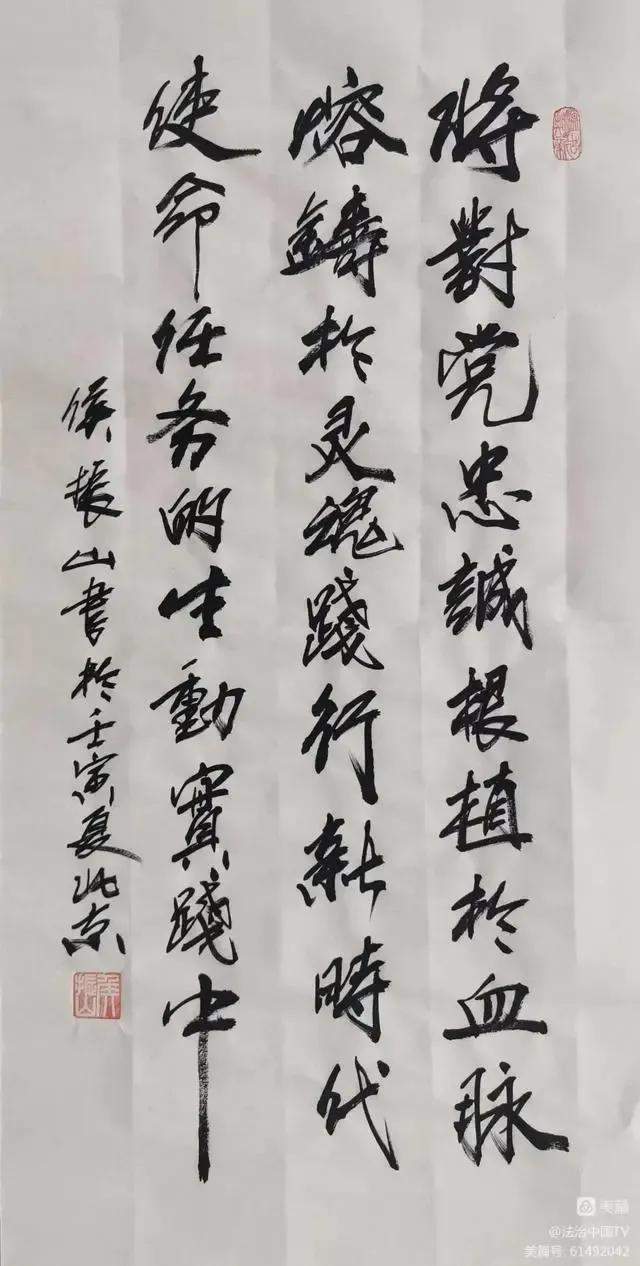 將對党忠誠根植於血脉
熔鑄於灵魂踐行新時代
使命任务的生動實踐中
侯振山書於壬寅夏北京
美篇
@法治中国TV
美篇号 61492042